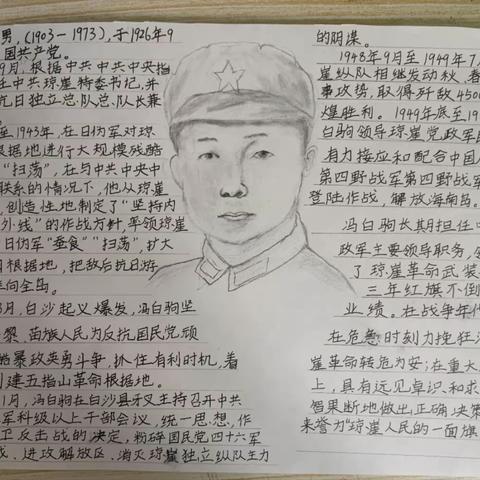 男，（1903－1973），于1926年9
国共产党。
9月，根据中共中共中央指
任中共琼崖特委书记，并
抗日独立总队总队长兼
至1943年，在日伪军对琼
根据地进行大规模残酷
“扫荡”，在与中共中央中
联系的情况下，他从琼崖
，创造性地制定了“坚持内
外线”的作战方针，率领琼崖
日伪军“蚕食”“扫荡”，扩大
日根据地，把敌后抗日游
向全岛。
8月，白沙起义爆发，冯白驹坚
黎、苗族人民为反抗国民党顽
暴政英勇斗争，抓住有利时机，着
创建五指山革命根据地。
1月，冯白驹在白沙县牙叉主持召开中共
军科级以上干部会议，统一思想，作
卫反击战的决定，粉碎国民党四十六军
，进攻解放区、消灭琼崖独立纵队主力
的阴谋。
1948年9月至1949年7月
崖纵队相继发动秋、春
事攻势，取得歼敌4500
煌胜利。1949年底至19
白驹领导琼崖党政军民
有力接应和配合中国人
第四野战军第四野战军
登陆作战，解放海南岛。
冯白驹长期担任
政军主要领导职务，
了琼崖革命武装
三年红旗不倒
业绩。在战争年代
在危急时刻力挽狂澜
崖革命转危为安；在重大
上，具有远见卓识和求
智果断地做出正确决策
来誉为“琼崖人民的一面旗